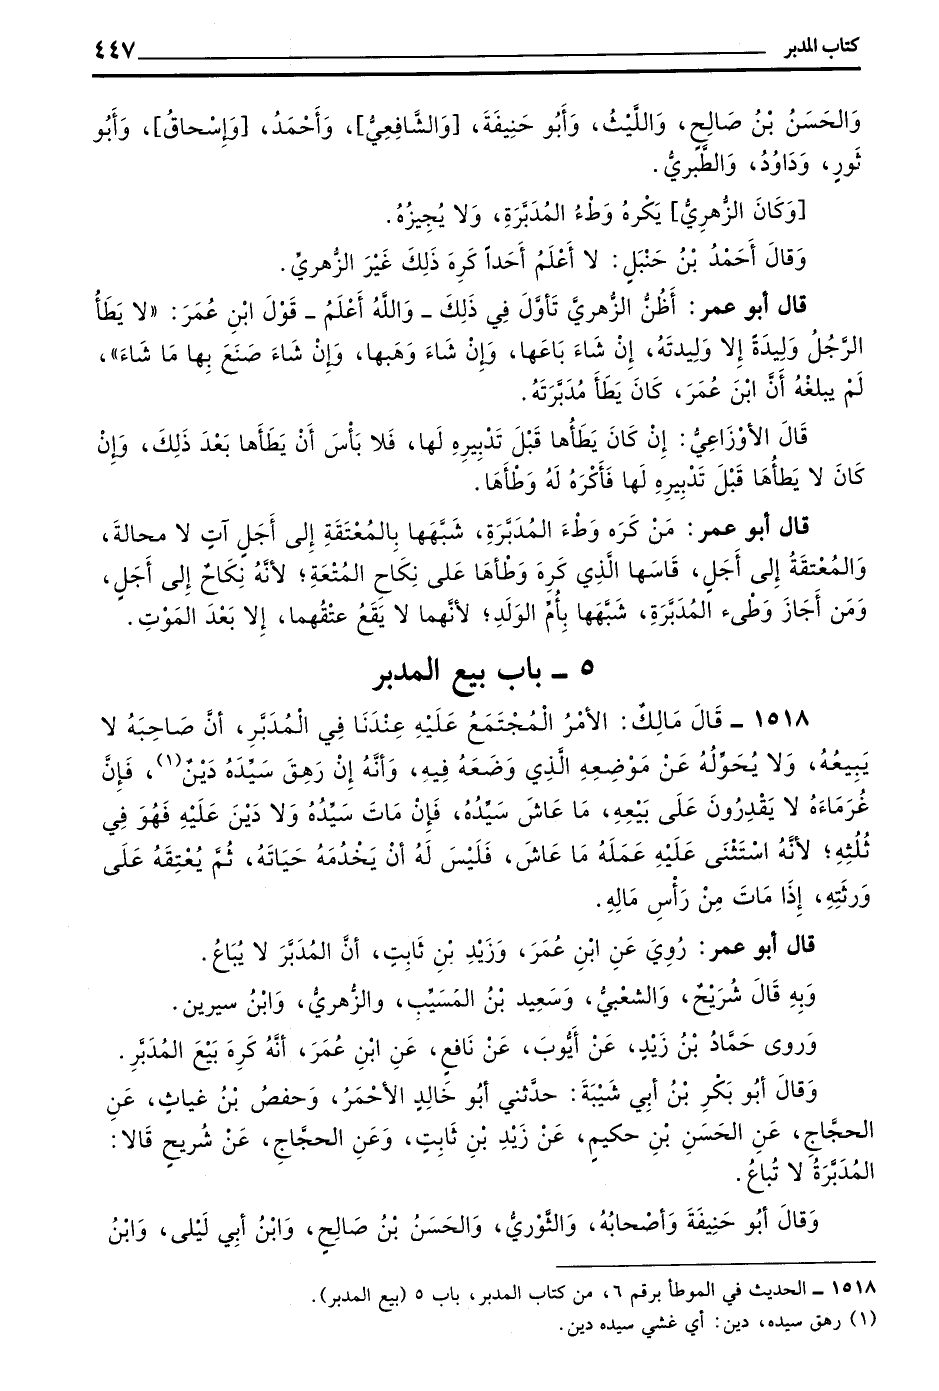 كتاب المدبر ٤٤٧
وَالحَسَنُ بْنُ صَالِحٍ، وَاللَّيْثُ، وَأَبُو حَنِيفَةَ، [وَالشَّافِعِيُّ]، وَأَحْمَدُ، [وَإِسْحاقُ]، وَأَبُو
ثَورٍ، وَدَاوُدُ، وَالطَّبَرِيُّ.
[وَكَانَ الزُّهرِيُّ] يَكْرهُ وَطْءُ المُدَبَّرَةِ، وَلا يُجِيزُهُ.
وَقالَ أَحْمَدُ بْنُ حَنْبَلٍ: لا أَعْلَمُ أَحداً كَرِهَ ذَلِكَ غَيْرَ الزُّهريِّ.
قال أبو عمر: أَظُنُّ الزُّهريَّ تَأوَّلَ فِي ذَلِكَ ـ وَاللَّهُ أَعْلَمُ ـ قَوْلَ ابْنِ عُمَرَ: «لا يَطَأُ
الرَّجُلُ وَلِيدَةً إِلا وَلِيدتَهُ، إِنْ شَاءَ بَاعَها، وَإِنْ شَاءَ وَهَبها، وَإِنْ شَاءَ صَنَعَ بِها مَا شَاءَ»،
لَمْ يبلغْهُ أَنَّ ابْنَ عُمَرَ، كَانَ يَطَأَ مُدَبَّرَتَهُ.
قَالَ الأوْزَاعِيُّ: إِنْ كَانَ يَطَأُها قَبْلَ تَدْبِيرِهِ لَها، فَلا بَأْسَ أَنْ يَطَأَها بَعْدَ ذَلِكَ، وَإِنْ
كَانَ لا يَطأُهَا قَبْلَ تَدْبِيرِهِ لَها فَأَكْرَهُ لَهُ وَطْأَهَا.
قال أبو عمر: مَنْ كَرَه وَطْءَ المُدَبَّرَةِ، شَبَّهَها بِالمُعْتَقَةِ إِلى أَجَلٍ آتٍ لا محالةَ،
وَالمُعْتقَةُ إِلى أَجَلٍ، قَاسَها الَّذِي كَرِهَ وَطْأَها عَلى نِكَاحِ المُتْعَةِ؛ لأَنَّهُ نِكَاحٌ إِلى أَجَلٍ،
وَمَن أَجَازَ وَطْىء المُدَبَّرَةِ، شَبَّهَها بِأُمِّ الوَلَدِ؛ لأَنَّهما لا يَقَعُ عتْقُهما، إِلا بَعْدَ المَوْتِ.
٥ ـ باب بيع المدبر
١٥١٨ ـ قَالَ مَالِكٌ: الأمْرُ الْمُجْتَمَعُ عَلَيْهِ عِنْدَنَا فِي الْمُدَبَّرِ، أنَّ صَاحِبَهُ لا
يَبِيعُهُ، وَلا يُحَوِّلُهُ عَنْ مَوْضِعِهِ الَّذِي وَضَعَهُ فِيهِ، وَأنَّهُ إِنْ رَهِقَ سَيِّدَهُ دَيْنٌ(١)، فَإِنَّ
غُرَمَاءَهُ لا يَقْدِرُونَ عَلَى بَيْعِهِ، مَا عَاشَ سَيِّدُهُ، فَإِنْ مَاتَ سَيِّدُهُ وَلا دَيْنَ عَلَيْهِ فَهُوَ فِي
ثُلُثِهِ؛ لأنَّهُ اسْتَثْنَى عَلَيْهِ عَمَلَهُ مَا عَاشَ، فَلَيْسَ لَهُ أنْ يَخْدُمَهُ حَيَاتَهُ، ثُمَّ يُعْتِقَهُ عَلَى
وَرَثَتِهِ، إِذَا مَاتَ مِنْ رَأْسِ مَالِهِ.
قال أبو عمر: رُوِيَ عَنِ ابْنِ عُمَرَ، وَزَيْدِ بْنِ ثَابِتٍ، أنَّ المُدَبَّرَ لا يُبَاعُ.
وَبِهِ قَالَ شُرَيْحٌ، وَالشعْبيُّ، وَسَعِيد بْنُ المُسَيِّبِ، والزُّهريُّ، وَابْنُ سيرين.
وَروى حَمَّادُ بْنُ زَيْدٍ، عَنْ أَيُّوبَ، عَنْ نَافعٍ، عَنِ ابْنِ عُمَرَ، أنَّهُ كَرِهَ بَيْعَ المُدَبَّرِ.
وَقالَ أَبُو بَكْرِ بْنُ أَبِي شَيْبَةَ: حدَّثني أبُو خَالِدٍ الأحْمَرُ، وَحفصُ بْنُ غياثٍ، عَنِ
الحجَّاجِ، عَنِ الحَسَنِ بْنِ حكيمٍ، عَنْ زَيْدِ بْنِ ثَابِتٍ، وَعَنِ الحجَّاجِ، عَنْ شُريحٍ قَالا:
المُدَبَّرَةُ لا تُباعُ.
وَقالَ أَبُو حَنِيفَةَ وَأصْحابُهُ، وَالثَّوْريُّ، وَالحَسَنُ بْنُ صَالِحٍ، وَابْنُ أبي لَيْلى، وَابْنُ
١٥١٨ ـ الحديث في الموطأ برقم ٦، من كتاب المدبر، باب ٥ (بيع المدبر).
(١) رهق سيده، دين: أي غشي سيده دين.